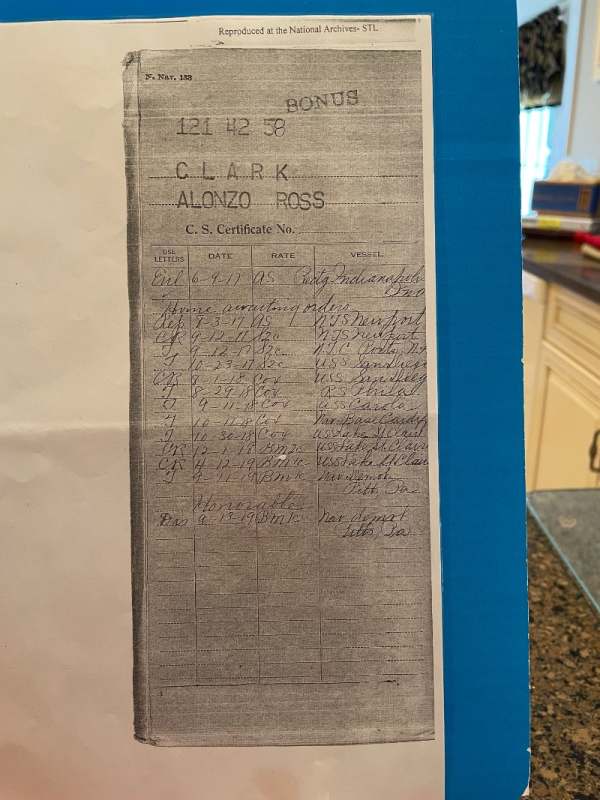 Reproduced at the National Archives- STL
N. Nav. 133
BONUS
121 42 58
CLARK
ALONZO ROSS
C. S. Certificate No.
USE LETTERS DATE RATE VESSEL
Enl 6-9-17 AS Indianapolis
Ind
Home awaiting orders
8-3-17 AS NTS Newport
CR 9-12-17 S2c NTS Newport
T 9-12-17 S2c
T 10-23-17 S2c USS San Diego
CR 8-1-18 Cox USS San Diego
T 8-29-18 Cox RS
T 9-11-18 Cox USS Carola
T 10-11-18 Cox Nav Base Cardiff
T 10-30-18 Cox USS Lake St Clair
CR 12-1-18 BM2c USS Lake St Clair
CR 4-12-19 BM1c USS Lake St Clair
T 9-11-19 BM1c Nav demob
Pitts Pa
Honorable
Dis 9-13-19 BM1c Nav demob
Pitts Pa